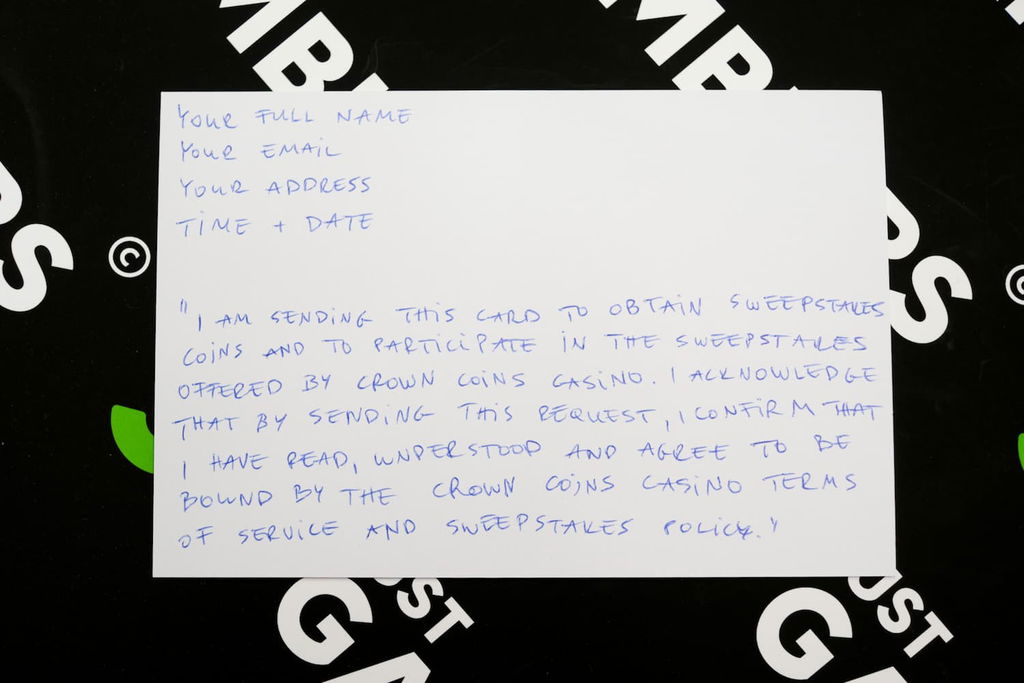 MB
MB
YOUR FULL NAME
YOUR EMAIL
YOUR ADDRESS
TIME + DATE
RS
©
RS
©
"I AM SENDING THIS CARD TO OBTAIN SWEEPSTAKES
COINS AND TO PARTICIPATE IN THE SWEEPSTAKES
OFFERED BY CROWN COINS CASINO. I ACKNOWLEDGE
THAT BY SENDING THIS REQUEST, I CONFIRM THAT
I HAVE READ, UNDERSTOOD AND AGREE TO BE
BOUND BY THE CROWN COINS CASINO TERMS
OF SERVICE AND SWEEPSTAKES POLICY."
UST
GA
UST
GA